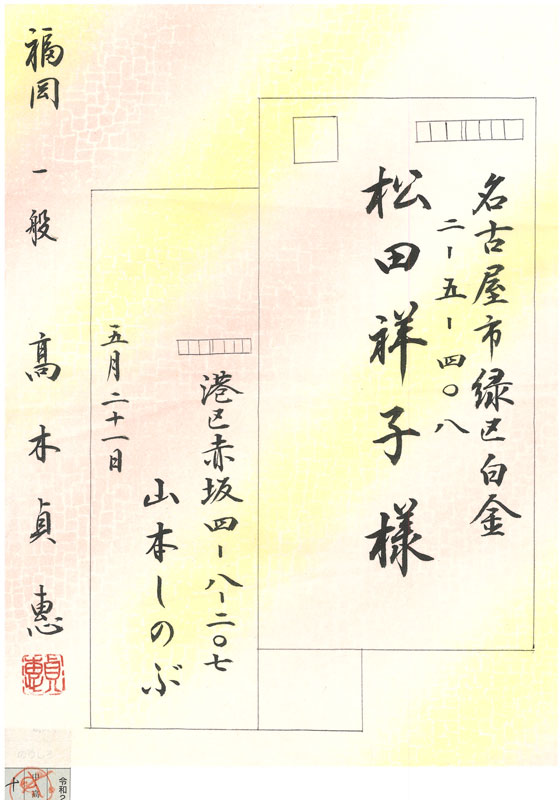 名古屋市緑区白金
二ー五ー四〇八
松田祥子様
港区赤坂四ー八ー二〇七
山本しのぶ
五月二十一日
福岡 一般 髙木貞惠
貞惠
のりしろ
令和2
十